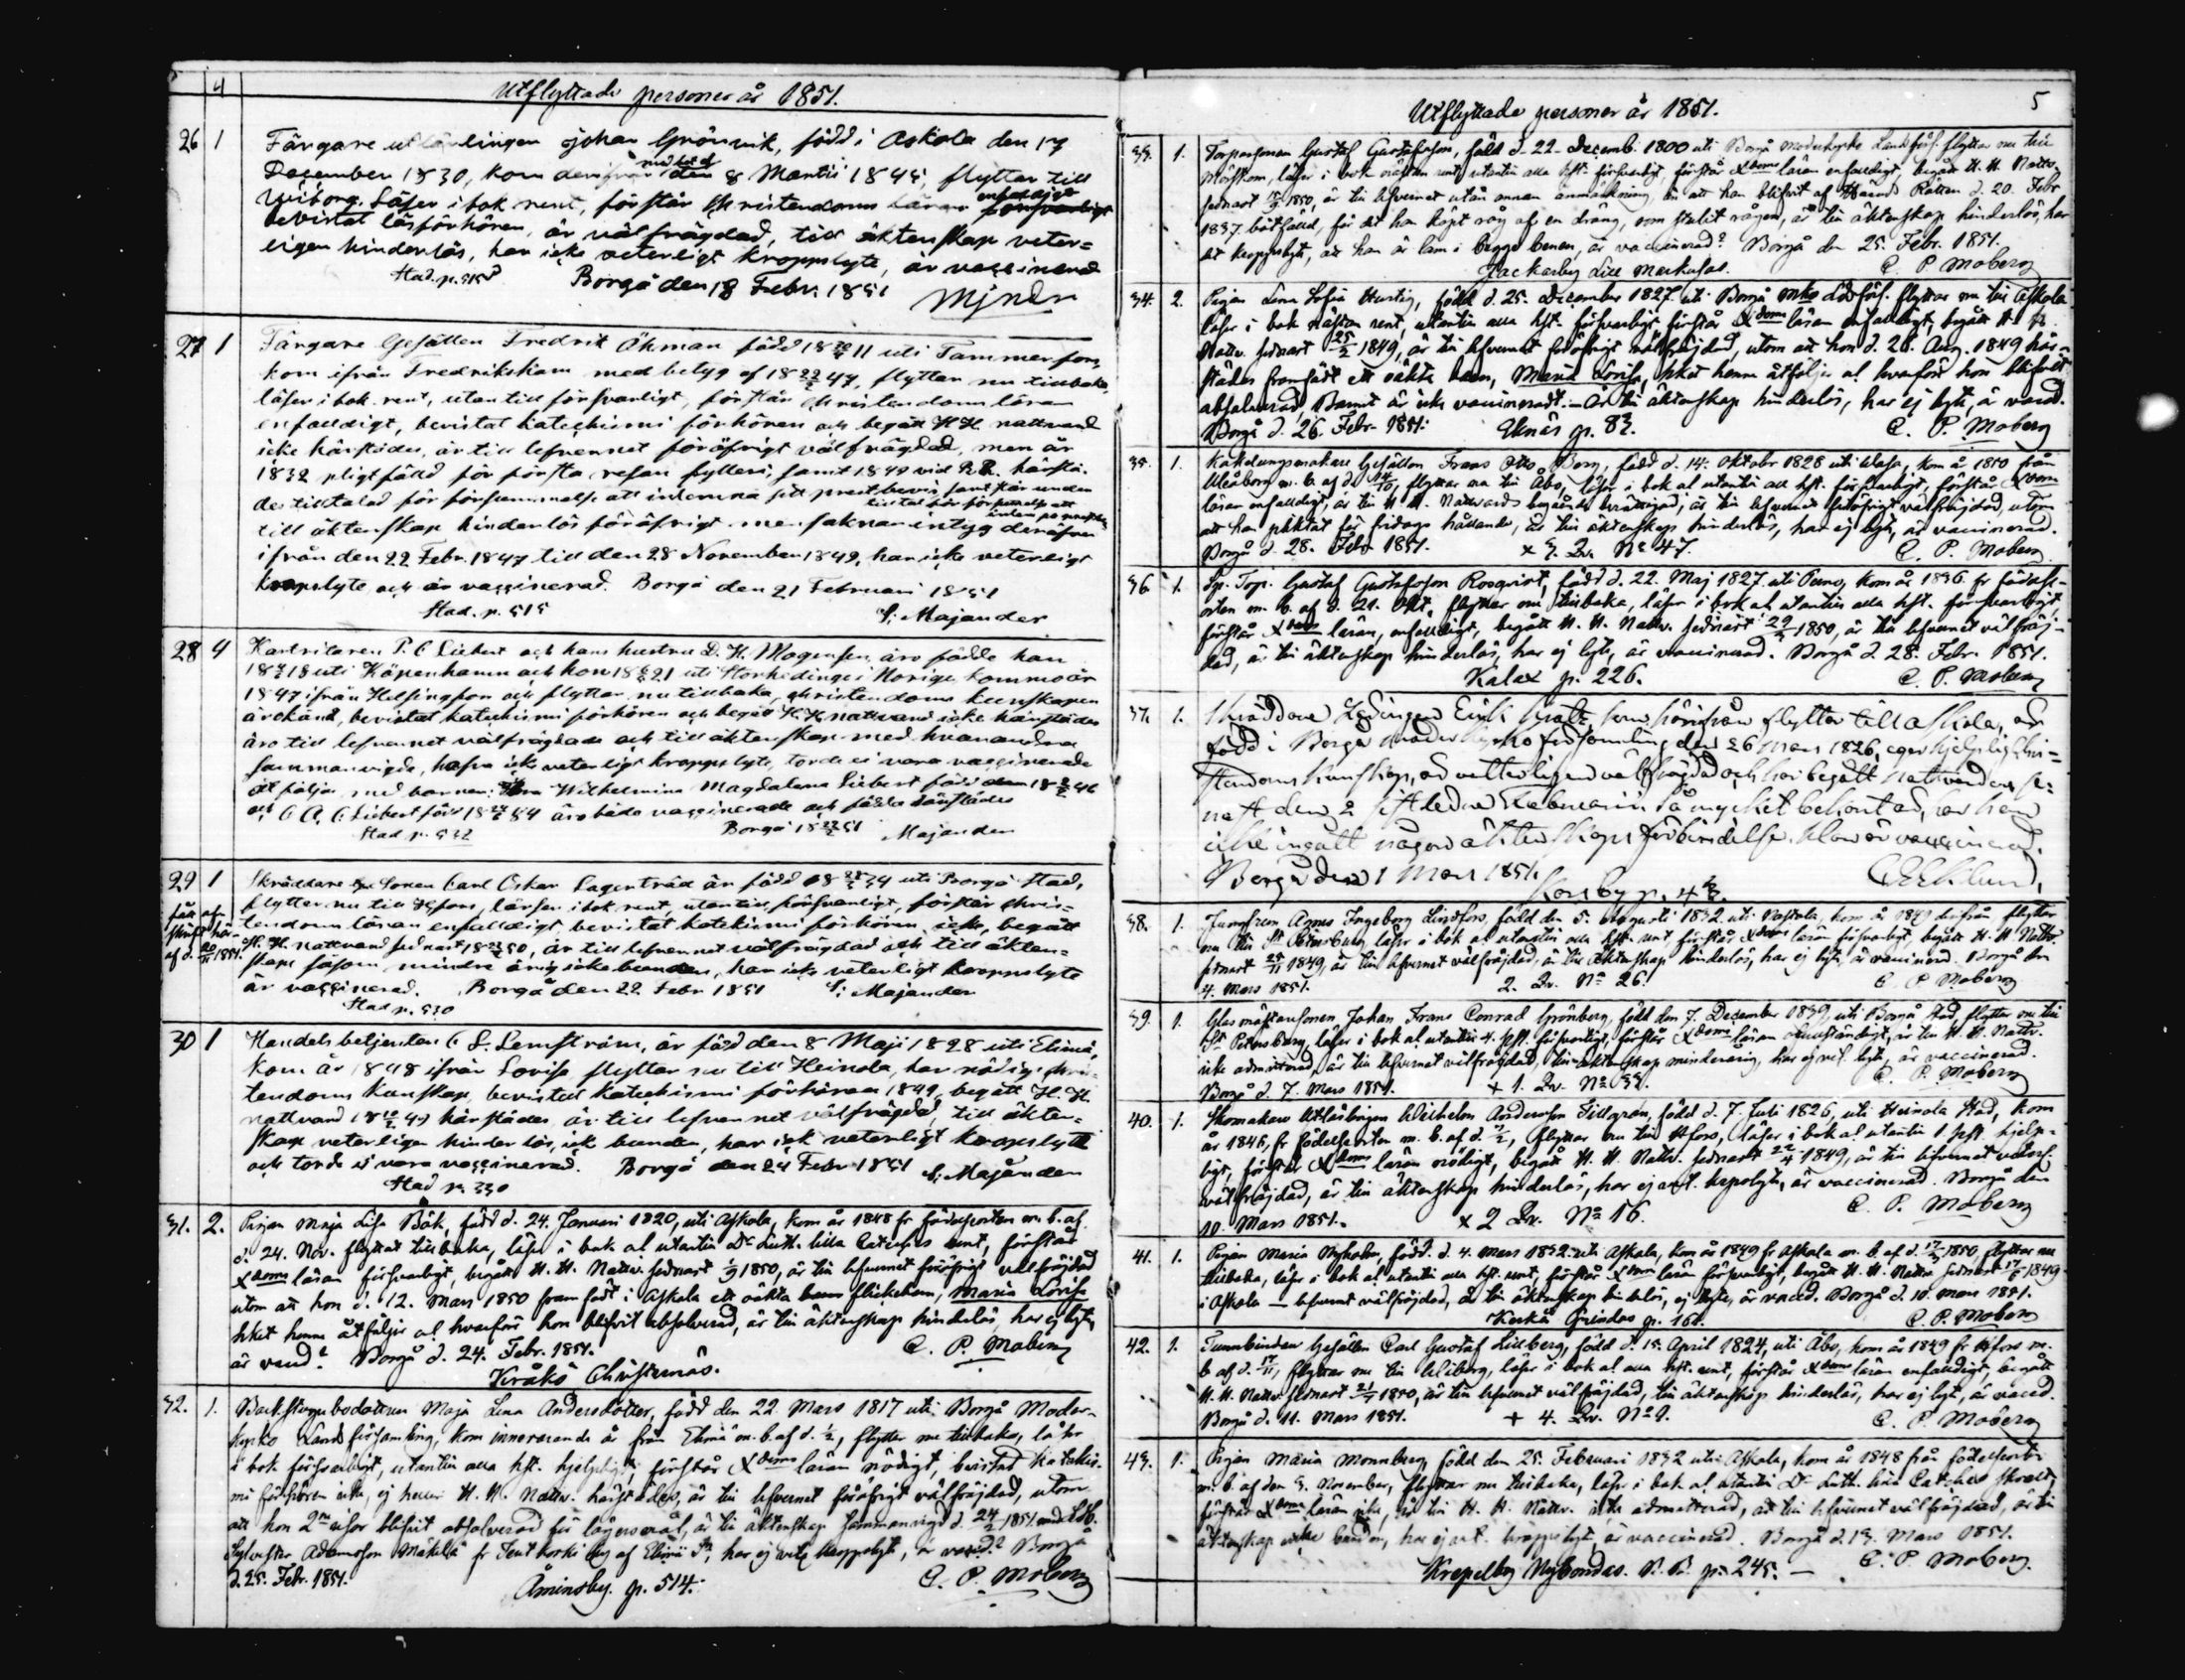 4
Utflyttade personer år 1851.
26 1 Färgare utlärlingen Johan Grönvik, född i Askola den 17
December 1830, kom derifrån med bet. af den 8 Martii 1845, flyttar till
Wiborg. Läser i bok rent, förstår Christendoms Läran enfaldigt försvarligt
bevistat läsförhören, är välfrägdad, till äktenskap veter=
ligen hinderlös, har icke veterligt kroppslyte, är vaccinerad
Stad. p. 515 Borgå den 18 Febr. 1851
27 1 Färgare Gesällen Fredrik Åkman född 18 11 uti Tammerfors,
kom ifrån Fredrikshamn med betyg af 18 22/2 47, flyttar nu tillbaka,
läser i bok rent, utantill försvarligt, förstår Christendoms läran
enfaldigt, bevistat katechismi förhören och begått H.H. nattvard
icke härstädes, är till lefvernet föröfrigt välfrägdad, men är
1832 pligtfälld för första resan fylleri, samt 1849 vid R.R. härstä-
des tilltalad för försummelse att inlemna sitt prestbevis
till äktenskap hinderlös föröfrigt men saknar intyg deröfver
ifrån den 22 Febr. 1847 till den 28 November 1849, har icke veterligt
kroppslyte och är vaccinerad. Borgå den 21 Februari 1851
Stad. p. 515 S: Majander
28 4 Kartritaren P. C Liebert och hans hustru D. H. Mogensen, äro födde han
18 18 uti Köpenhamn och hon 18 21 uti Storhedinge i Norige, kommo år
1847 ifrån Helsingfors och flyttar nu tillbaka, christendoms kunskapen
är okänd, bevistat katechismi förhören och begått H.H. nattvard icke härstädes
äro till lefvernet välfrägdade och till äktenskap med hvarandra
sammanvigde, hafva icke veterligt kroppslyte, torde ei vara vaccinerade
åtföljas med barnen: Wilhelmina Magdalena Liebert född den 18 46
och C A. C Liebert född 18 äro båda vaccinerade och födda härstädes
Stad p. 532 Borgå 18 51 Majander
29 1 Skräddare Sonen Carl Oskar Lagerträd är född 18 34 uti Borgå Stad,
flyttar nu till Hfors, läser i bok rent, utantill försvarligt, förstår chris=
tendoms läran enfaldigt, bevistat katekismi förhören icke, begått
H. H. nattvard sednast 18 50, är till lefvernet välfrägdad och till äkten=
skap såsom mindre årig icke bunden, har icke veterligt kroppslyte
är vaccinerad. Borgå den 22 Febr 1851 S: Majander
Stad p. 530
30 1 Handels betjenten C L. Lemström, är född den 8 Maji 1828 uti Elimä,
kom år 1848 ifrån Lovisa flyttar nu till Heinola, har nödig chris-
tendoms kunskap, bevistat Katechismi förhören 1849, begått H. H.
nattvard 18 49 härstädes, är till lefvernet välfrägdad, till äkten=
skap veterligen hinderlös, icke bunden, har icke veterligt kroppslyte
och torde ei vara vaccinerad. Borgå den 24 Febr 1851 S: Majander
Stad p. 330
31. 2. Pigan Maja Lisa Bök, född d. 24. Januari 1820, uti Askola, kom år 1848 fr födelseorten m. b. af
d. 24. Nov. flyttar tillbaka, läser i bok al utantill Dr Luth. lilla Cateches rent, förstår
Xdoms läran försvarligt, begått H. H. Nattv. sednast 1850, är till lefvernet föröfrigt välfräjdad
utom att hon d. 12. Mars 1850 framfödt i Askola ett oäkta flickebarn, Maria Lovisa
hvilket henne åtföljer al hvarför hon blifvit absolverad, är till äktenskap hinderlös, har ej lyte,
är vaccd? Borgå d. 24. Febr. 1851. C. P. Moberg
Kråkö Christernäs.
32. 1. Backstugubodottren Maja Lena Andersdotter, född den 22. Mars 1817 uti Borgå Moder-
kyrko Landsförsamling, kom innevarande år från Elimä m. b. af d. 1/2, flyttar nu tillbaka, läser
i bok försvarligt, utantill alla hft. hjelpligt, förstår Xdoms läran nödigt, bevistad Katekis-
mi förhören icke, ej heller H. H. Nattv. härstädes, är till lefvernet föröfrigt välfräjdad, utom
att hon 2ne resor blifvit absolverad för lägersmål, är till äktenskap sammanvigd d. 24/2 1851 med
Sylvester Adamsson Mäkelä fr Teutkorki by af Elimä, har ej vetl kroppslyte, är vaccd? Borgå
d. 25. Febr. 1851. Åminsby. p. 514. C. P. Moberg
5
Utflyttade personer år 1851.
33. 1. Torpsonen Gustaf Gustafsson, född d. 22. Decemb. 1800 uti Borgå moderkyrko Landsförs. flyttar nu till
Mörskom, läser i bok nästan rent, utantill alla hft. försvarligt, förstår Xdoms läran enfaldigt, begått H. H. Nattv.
sednast 1850, är till lefvernet utan annan anmärkning, än att han blifvit af Härads Rätten d. 20. Febr.
1837. botfälld, för det han köpt råg af en dräng, som stulit rågen, är till äktenskap hinderlös, har
det kroppslyte, att han är lam i begge benen, är vaccinerad? Borgå den 25. Febr. 1851.
Jackarby Lill Markusas. C. P. Moberg
34. 2. Pigan Lena Sofia Hurtig, född d. 25. December 1827 uti Borgå mko Ldsförs. flyttar nu till Askola
läser i bok nästan rent, utantill alla hft. försvarligt förstår Xdoms läran enfaldigt, begått H. H.
Nattv. sednast 25/2 1849, är till lefvernet föröfrigt välfräjdad, utom att hon d. 28. Aug. 1849 här-
städes framfödt ett oäkta barn, Maria Lovisa, hvilket henne åtföljer al hvarför hon blifvit
absolverad, Barnet är icke vaccineradt. – Är till äktenskap hinderlös, har ej lyte, är vaccd.
Borgå d. 26. Febr. 1851. Eknäs p. 83. C. P. Moberg
35. 1. Kakelungsmakare Gesällen Frans Otto Borg, född d. 14. Oktobr 1828 uti Wasa, kom år 1850 från
Uleåborg m. b. af d., flyttar nu till Åbo, läser i bok al utantill all hft. försvarligt, förstår Xdoms
läran enfaldigt, är till H. H. Nattvards begående berättigad, är till lefvernet föröfrigt välfräjdad, utom
att han pliktat för fridags hållande, är till äktenskap hinderlös, har ej lyte, är vaccinerad.
Borgå d. 28. Febr 1851. x 3. Qv. No 47. C. P. Moberg
36 1. Gustaf Gustafsson Rosqvist, född d. 22. Maj 1827 uti Perno, kom år 1836 fr födelse-
orten m. b. af d. 21. Okt., flyttar nu tillbaka, läser i bok al utantill alla hft. försvarligt,
förstår Xdoms läran, enfaldigt, begått H. H. Nattv. sednast 1850, är till lefvernet välfräj-
dad, är till äktenskap hinderlös, har ej lyte, är vaccinerad. Borgå d. 28. Febr. 1851.
Kalax p. 226. C. P. Moberg
37. 1. Skräddare Lärlingen som härifrån flyttar till Askola, är
född i Borgå moder kyrko församling den 26 Mars 1826, eger hjelplig Chri=
stendoms kunskap, är veterligen välfräjdad och har begått Nattvarden se=
nast den 2 sistledne Februarii så mycket bekant är, har han
icke ingått någon äktenskaps förbindelse. Han är vaccinerad.
Borgå den 1 Mars 1851.
Korsby p. 43.
38. 1. Jungfrun Agnes Ingeborg Lindfors, född den 5. Augusti 1832 uti Nastola, kom år 1849 derifrån, flyttar
nu till St Petersburg, läser i bok al utantill alla hft. rent förstår Xdoms läran försvarligt, begått H. H. Nattv.
sednast 1849, är till lefvernet välfräjdad, är till äktenskap hinderlös, har ej lyte, är vaccinerad. Borgå den
4. Mars 1851. 2. Qv. No 26. C. P. Moberg
39. 1. Glasmästaresonen Johan Frans Conrad Grönberg, född den 7. December 1839, uti Borgå Stad, flyttar nu till
St Petersburg, läser i bok al utantill 4. hft. försvarligt, förstår Xdoms läran, är till H. H. Nattv.
icke admitterad, är till lefvernet välfräjdad, till äktenskap minderårig, har ej vetl. lyte, är vaccinerad.
Borgå d. 7. Mars 1851. + 1. Qv. No 33. C. P. Moberg
40. 1. Skomakare Utlärlingen Wilhelm Andersson Tillgren, född d. 7. Juli 1826, uti Heinola Stad, kom
år 1846, fr födelseorten m. b. af d., flyttar nu till Hfors, läser i bok al utantill 1. hft. hjelp-
ligt, förstår Xdoms läran nödigt, begått H. H. Nattv. sednast 1849, är till lefvernet veterl.
välfräjdad, är till äktenskap hinderlös, har ej vet. kropslyte, är vaccinerad. Borgå den
10. Mars 1851. x 2 Qv. No 16. C. P. Moberg
41. 1. Pigan Maria Nyholm, född. d. 4. Mars 1832 uti Askola, kom år 1849 fr Askola m. b. af d. 1850, flyttar nu
tillbaka, läser i bok al utantill alla hft. rent, förstår Xdoms läran försvarligt, begått H. H. Nattv. sednast 1849
i Askola – lefvernet välfräjdad, är till äktenskap hinderlös, ej lyte, är vaccd. Borgå d. 10. Mars 1851.
Grindas p. 160. C. P. Moberg
42. 1. Tunnbindare Gesällen Carl Gustaf Lillberg, född d. 15. April 1824, uti Åbo, kom år 1849 fr Hfors m.
b af d., flyttar nu till Wiborg, läser i bok al alla hft. rent, förstår Xdoms läran enfaldigt, begått
H. H. Nattv. sednast 1850, är till lefvernet välfräjdad, till äktenskap hinderlös, har ej lyte, är vaccd.
Borgå d. 11. Mars 1851. + 4. Qv. No 9. C. P. Moberg
43. 1. Pigan Maria Monnberg, född den 25. Februari 1832 uti Askola, kom år 1848 från födelseorten
m. b. af den 3. November, flyttar nu tillbaka, läser i bok al utantill Dr Luth. lilla Cateches,
förstår Xdoms läran icke, är till H. H. Nattv. icke admitterad, är till lefvernet välfräjdad, är till
äktenskap icke bunden, har ej vet. kroppslyte, är vaccinerad. Borgå d. 13. Mars 1851.
Krepelby Nybondas. N. B. p. 245. – C. P. Moberg.